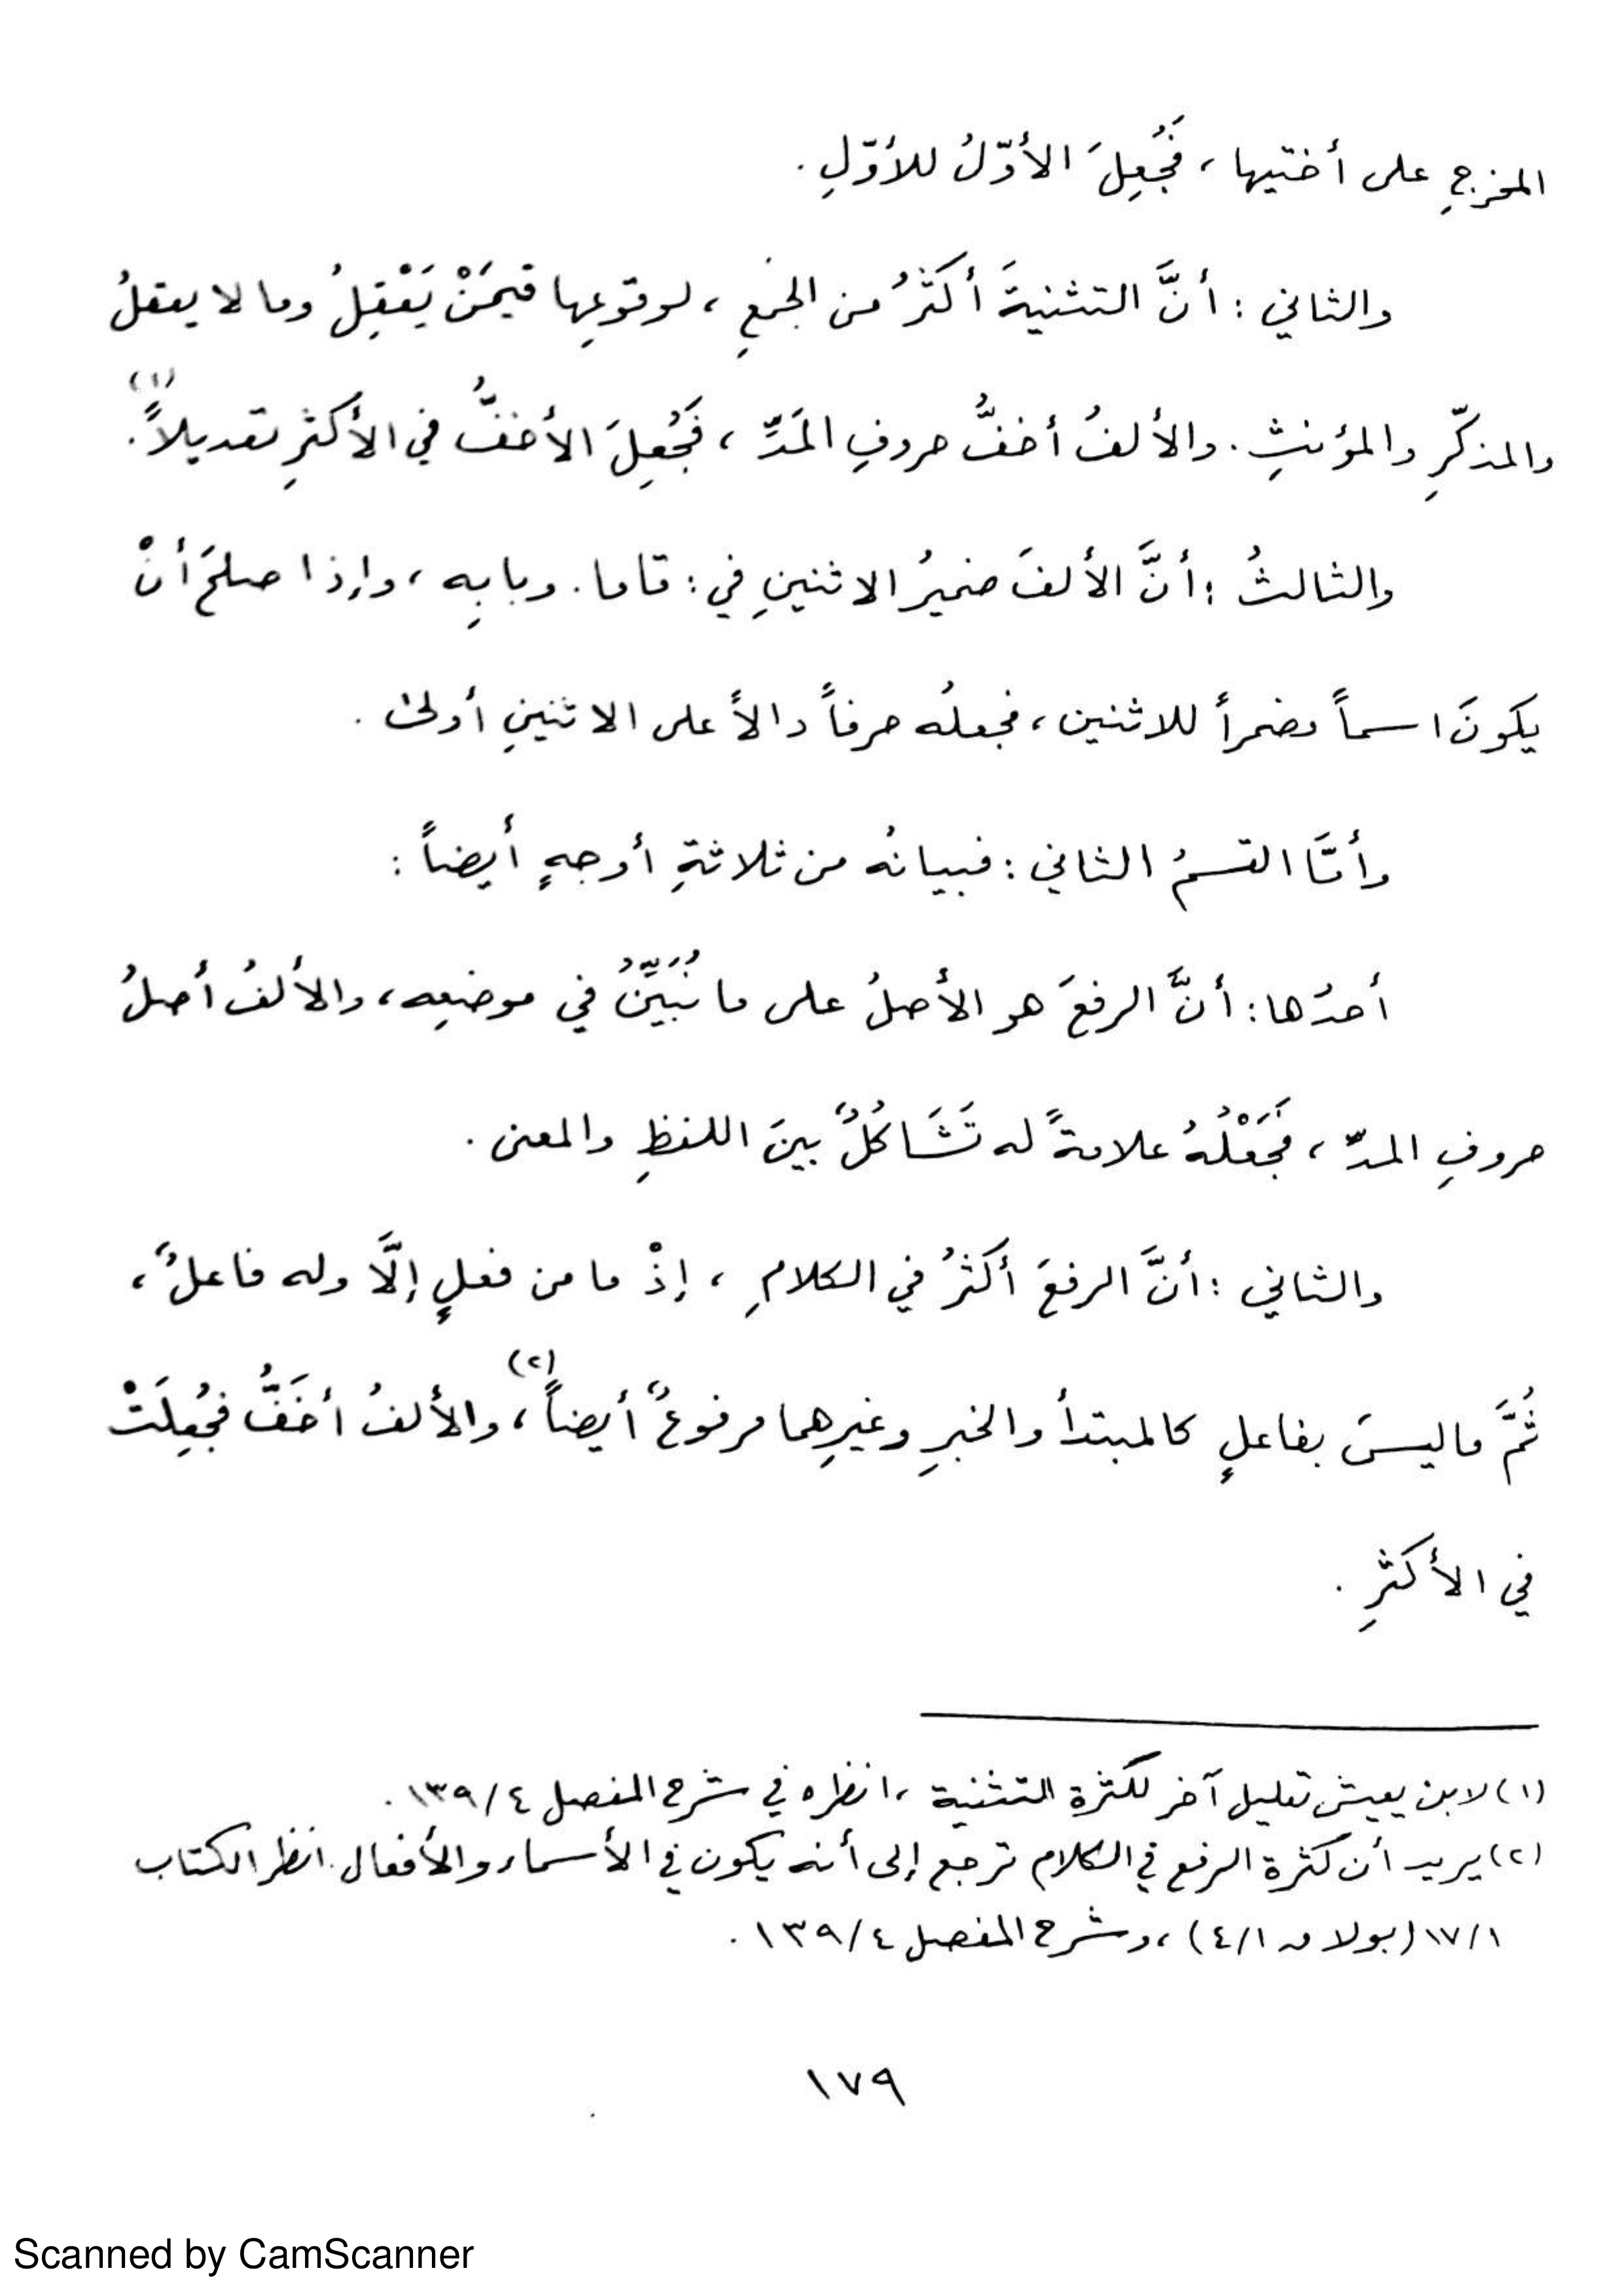 المخرجِ على أختيها ، فَجُعِلَ الأوّلُ للأوّلِ .
والثاني : أنَّ التثنيةَ أكثَرُ من الجمعِ ، لوقوعِها فيمَنْ يَعْقِلُ وما لا يعقلُ
والمذكّرِ والمؤنثِ . والألفُ أخفُّ حروفِ المَدِّ ، فَجُعِلَ الأخفُّ في الأكثرِ تعديلاً(١) .
والثالثُ : أنَّ الألفَ ضميرُ الاثنينِ في : قاما . وبابِه ، وإذا صلحَ أنْ
يكونَ اسماً مضمراً للاثنين ، فجعلُه حرفاً دالاً على الاثنينِ أولىٰ .
وأمَّا القسمُ الثاني : فبيانُه من ثلاثةِ أوجهٍ أيضاً :
أحدُها : أنَّ الرفعَ هو الأصلُ على ما نُبَيِّنُ في موضعِه ، والألفُ أصلُ
حروفِ المدِّ ، فَجَعْلُهُ علامةً له تَشَاكُلٌ بينَ اللفظِ والمعنى .
والثاني : أنَّ الرفعَ أكثرُ في الكلامِ ، إذْ ما من فعلٍ إلَّا وله فاعلٌ ،
ثُمَّ ما ليسَ بفاعلٍ كالمبتدأ والخبرِ وغيرِهما مرفوعٌ أيضاً(٢) ، والألفُ أخَفُّ فجُعِلَتْ
في الأكثرِ .
(١) لابن يعيش تعليل آخر لكثرة التثنية ، انظره في شرح المفصل ٤/١٣٩ .
(٢) يريد أن كثرة الرفع في الكلام ترجع إلى أنه يكون في الأسماء والأفعال . انظر الكتاب
١/١٧ (بولاق ١/٤) ، وشرح المفصل ٤/١٣٩ .
١٧٩
Scanned by CamScanner